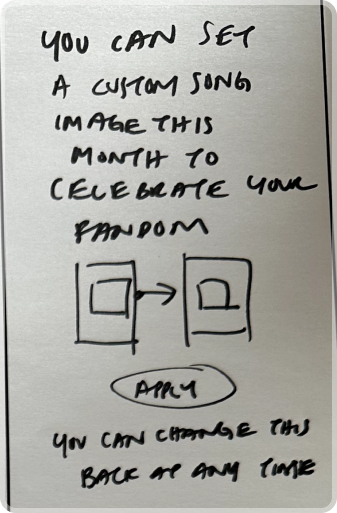 YOU CAN SET
A CUSTOM SONG
IMAGE THIS
MONTH TO
CELEBRATE YOUR
FANDOM
APPLY
YOU CAN CHANGE THIS
BACK AT ANY TIME